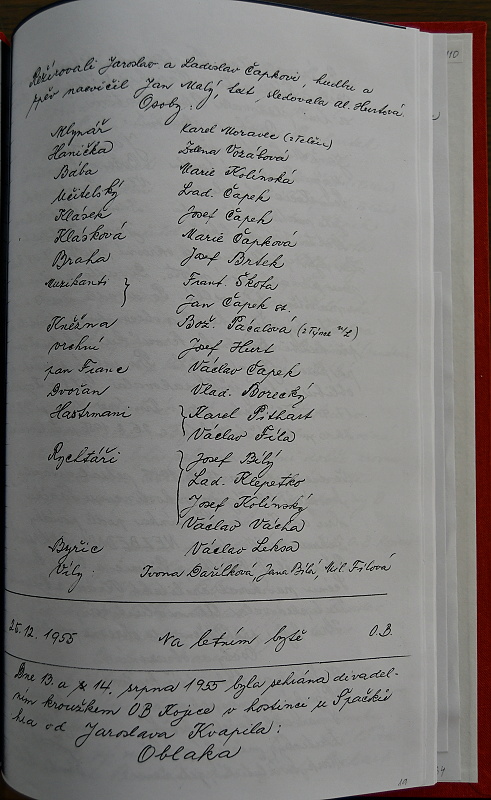 Režírovali Jaroslav a Ladislav Čapkovi, hudbu a
zpěv nacvičil Jan Malý, text sledovala Al. Hurtová.
Osoby:
Mlynář Karel Moravec (z Telče)
Hanička Zdena Vozábová
Bába Marie Kolínská
Učitelský Lad. Čapek
Klásek Josef Čapek
Klásková Marie Čapková
Braha Josef Brtek
Muzikanti } Frant. Škoda
Jan Čapek st.
Kněžna Bož. Pácalová (z Týna n/L)
Vrchní Josef Hurt
pan Franc Václav Čapek
Dvořan Vlad. Borecký
Hastrmani } Karel Pithart
Václav Fila
Rychtáři } Josef Bílý
Lad. Klepetko
Josef Kolínský
Václav Vácha
Byřic Václav Leksa
Víly Ivona Dařílková, Jana Bílá, Mil. Filová
25.12. 1955 Na letním bytě O.B.
Dne 13. a 14. srpna 1955 byla sehrána divadel-
ním kroužkem OB Kojice v hostinci u Špačků
hra od Jaroslava Kvapila:
Oblaka